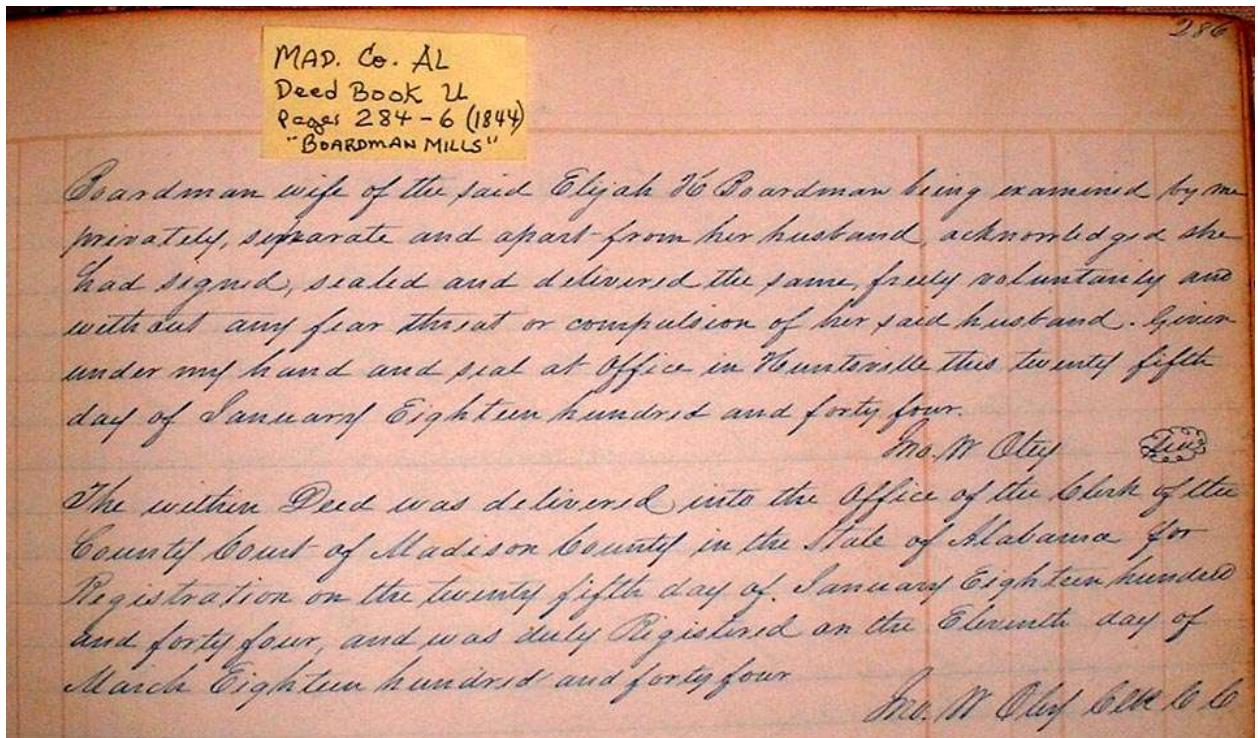 286
MAD. Co. AL
Deed Book U
Pages 284-6 (1844)
"BOARDMAN MILLS"
Boardman wife of the said Elijah H Boardman being examined by me
privately, separate and apart from her husband, acknowledged she
had signed, sealed and delivered the same, freely voluntarily and
without any fear threat or compulsion of her said husband. Given
under my hand and seal at Office in Huntsville this twenty fifth
day of January Eighteen hundred and forty four.
Jno. W Otey Seal
The within Deed was delivered into the Office of the Clerk of the
County Court of Madison County in the State of Alabama for
Registration on the twenty fifth day of January Eighteen hundred
and forty four, and was duly Registered on the Eleventh day of
March Eighteen hundred and forty four
Jno. W Otey Clk C C